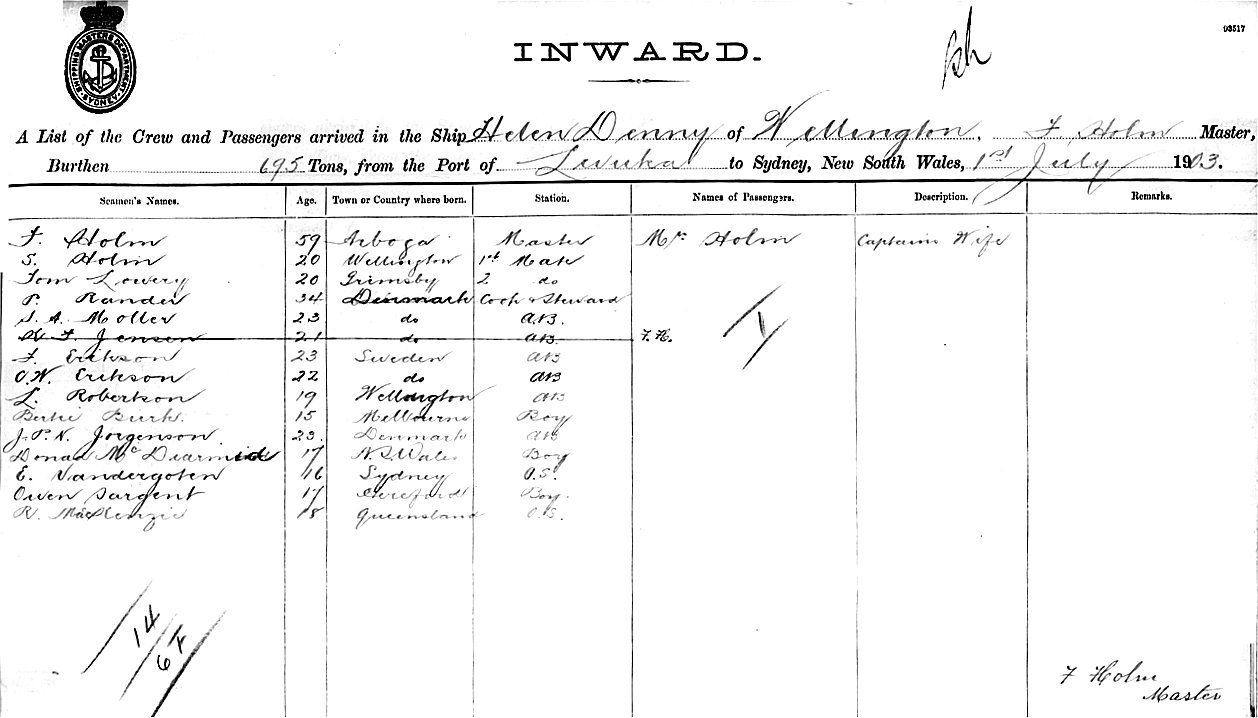 SHIPPING MASTERS DEPARTMENT
SYDNEY
93517
INWARD.
A List of the Crew and Passengers arrived in the Ship Helen Denny of Wellington, F Holm Master,
Burthen 695 Tons, from the Port of Levuka to Sydney, New South Wales, 1st July 1903.
Seamen's Names. Age. Town or Country where born. Station. Names of Passengers. Description. Remarks.
F. Holm 59 Arboga Master Mrs Holm Captains Wife
S. Holm 20 Wellington 1st Mate
Tom Lowery 20 Grimsby 2 do
P. Rander 34 Denmark Cook & Steward
S. A. Moller 23 do AB.
F. Jensen 21 do AB F.H.
F. Erikson 23 Sweden AB
O.W. Erikson 22 do AB
L. Robertson 19 Wellington AB
Bertie 15 Melbourne Boy
J.P.N. Jorgenson 23. Denmark AB
Donald McDiarmid 17 N.S. Wales Boy
E. Vandergoten 16 Sydney O.S.
Owen Sargent 17 Boy.
R. MacKenzie 18 Queensland O.S.
14
6 F
F Holm
Master